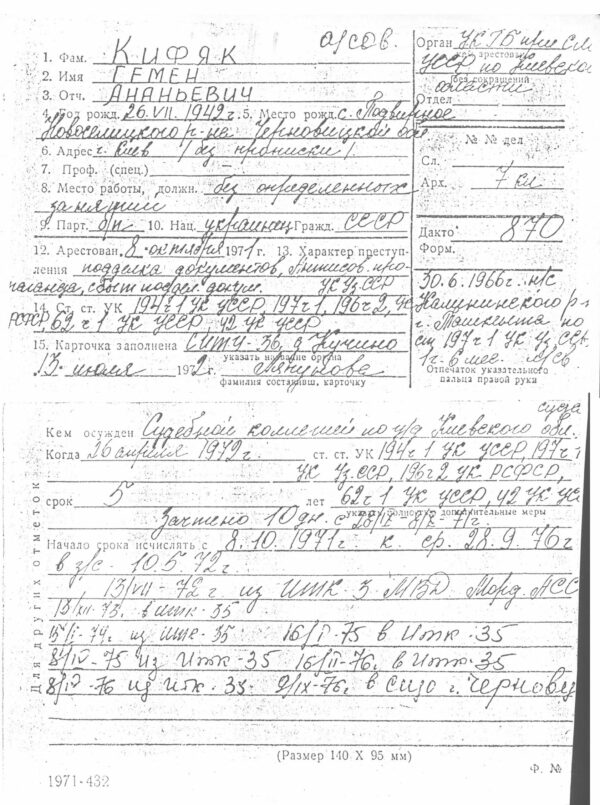 а/сов.
1. Фам. КИФЯК
2. Имя СЕМЕН
3. Отч. АНАНЬЕВИЧ
4. Год рожд. 26.VII.1942 г. 5. Место рожд. с. Подвирное
Новоселицкого р-на Черновицкой обл
6. Адрес г. Киев /без прописки/.
7. Проф. (спец.)
8. Место работы, должн. без определенных
занятий
9. Парт. б/п 10. Нац. украинец Гражд. СССР
12. Арестован 8 октября 1971 г. 13. Характер преступ-
ления подделка документов, антисов. про-
паганда, сбыт поддел. докум. УК Уз ССР
14. Ст. ст. УК 194 ч 1 УК УССР, 197 ч 1, 196 ч 2, УК
РСФСР, 62 ч 1 УК УССР, 42 УК УССР
15. Карточка заполнена ИТУ-36, д. Кучино
указать название органа
13 июля 1972 г.
фамилия составивш. карточку
Орган УКГБ при СМ
арестовал
УССР по Киевской
без сокращений
области
Отдел
№ № дел
Сл.
Арх. 7 кл
Дакто 870
Форм.
30.6.1966 г. н/с
Калининского р-
г. Ташкента по
ст 197 ч 1 УК Уз ССР
1 г. 6 мес. л/св
Отпечаток указательного
пальца правой руки
суда
Кем осужден Судебной коллегией по у/д Киевского обл.
Когда 26 апреля 1972 г. ст. ст. УК 194 ч 1 УК УССР, 197 ч 1
УК Уз. ССР, 196 ч 2 УК РСФСР,
срок 5 лет 62 ч 1 УК УССР, 42 УК УС
указать полностью дополнительные меры
Зачтено 10 дн. с
Начало срока исчислять с 8.10.1971 г к. ср. 28.9.76 г
в з/с. 10.5.72 г.
13/VII-72 г из ИТК-3 МВД Морд. АСС
13/XII-73. в ИТК-35
из ИТК-35 16/II-75 в ИТК-35
8/IV-75 из ИТК-35 16/II-76. в ИТК-35
8/IV-76 из ИТК-35- 9/IX-76. в СИЗО г. Черновц
Для других отметок
(Размер 140 X 95 мм)
Ф. №
1971-432